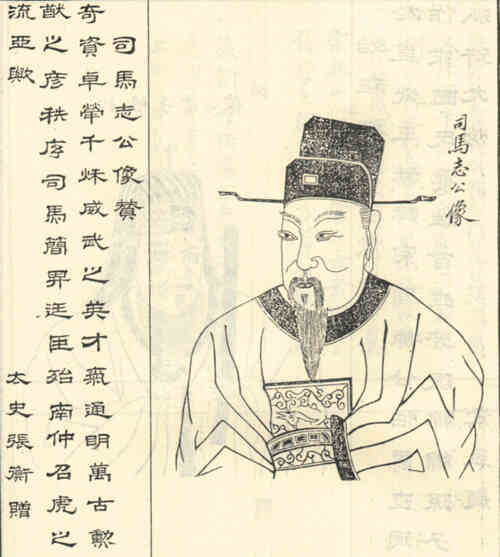 司馬志公像
司馬志公像贊
奇資卓犖千秌威武之英才氣通明萬古勳
猷之彥秩序司馬簡昇廷臣殆南仲召虎之
流亞歟 太史張衡贈